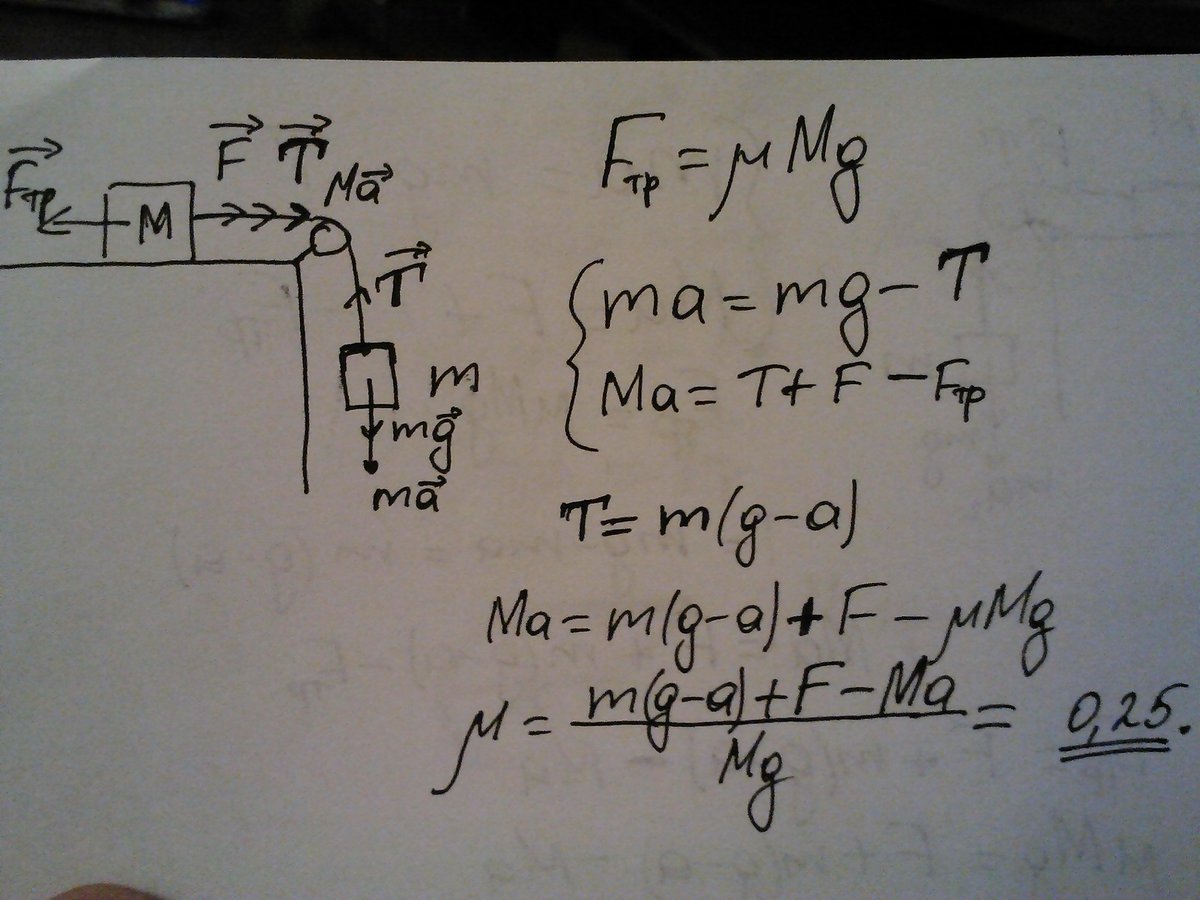 F⃗тр
F⃗ T⃗
Ma⃗
M
T⃗
m
mg⃗
ma⃗
Fтр = μMg
ma = mg − T
Ma = T + F − Fтр
T = m(g−a)
Ma = m(g−a) + F − μMg
μ = m(g−a) + F − Ma = 0,25.
Mg